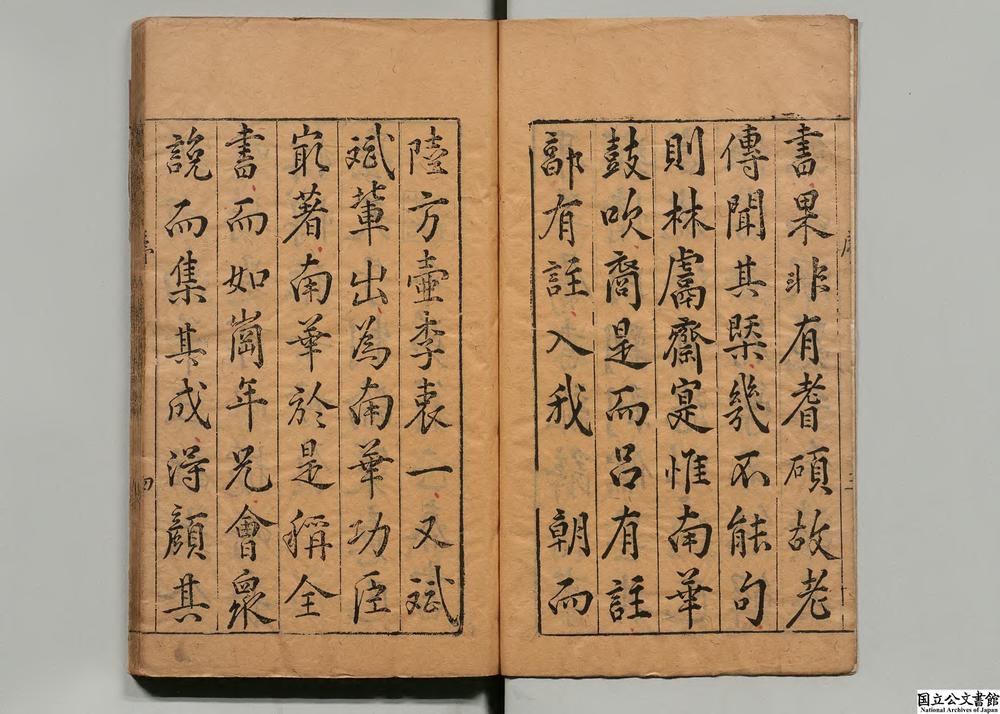 書果非有耆碩故老
傳聞其槩幾不能句
則林鬳齋寔惟南華
鼓吹裔是而呂有註
郭有註入我朝而
陸方壺李衷一又斌
斌輩出為南華功臣
嵓著南華於是稱全
書而如崗年兄會衆
說而集其成得顏其
序
三
四
国立公文書館
National Archives of Japan